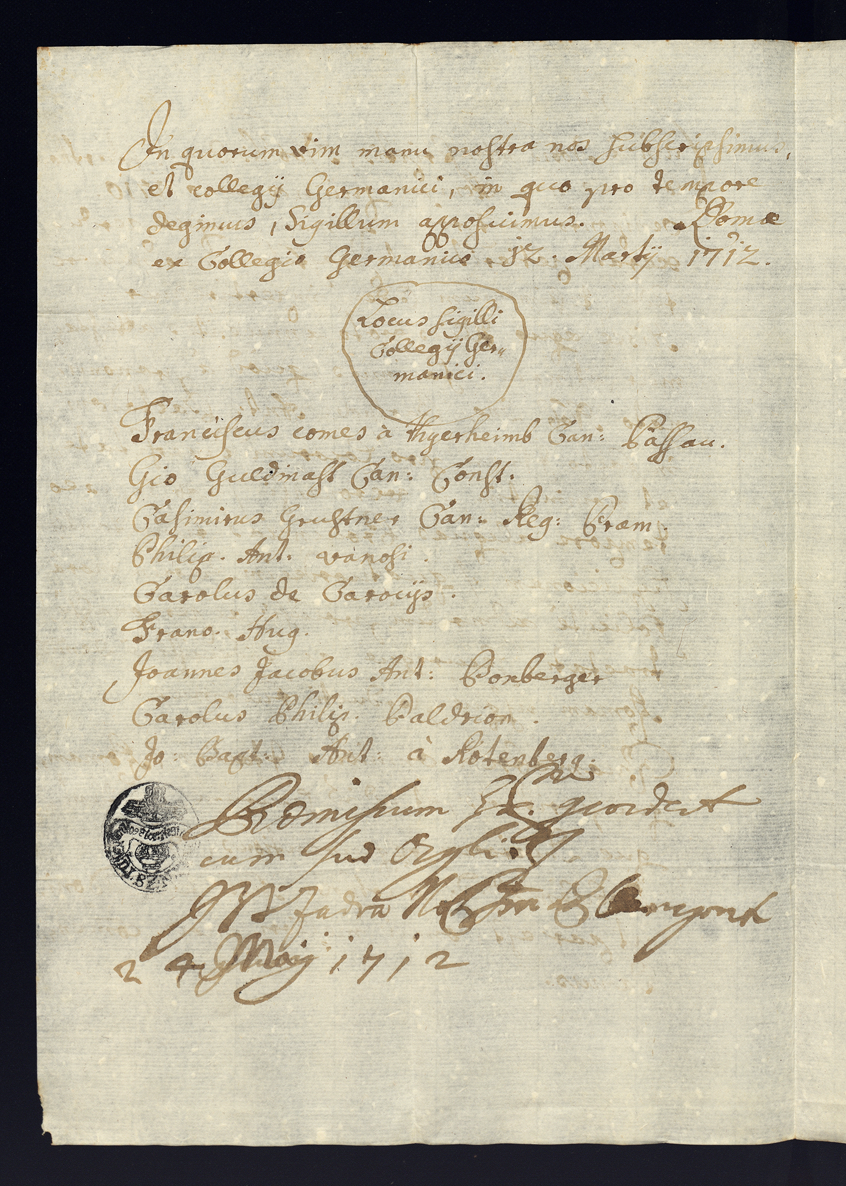 In quorum vim manu nostra nos subscripsimus,
et collegij Germanici, in quo pro tempore
degimus, sigillum apposuimus. Romæ
ex Collegio Germanico 12. Martij 1712.
Locus sigilli
Collegij Ger-
manici.
Franciscus comes à Can: Passau.
Gio Guldinast Can: Const.
Casimirus Can: Reg: Fram.
Philip. Ant. vanosi.
Carolus de
Franc. Hug.
Joannes Jacobus Ant: Bonberger
Carolus Philip. Baldrion.
Jo: Bapt: Ant: à Rotenberg.
cum suo
24 Maij 1712